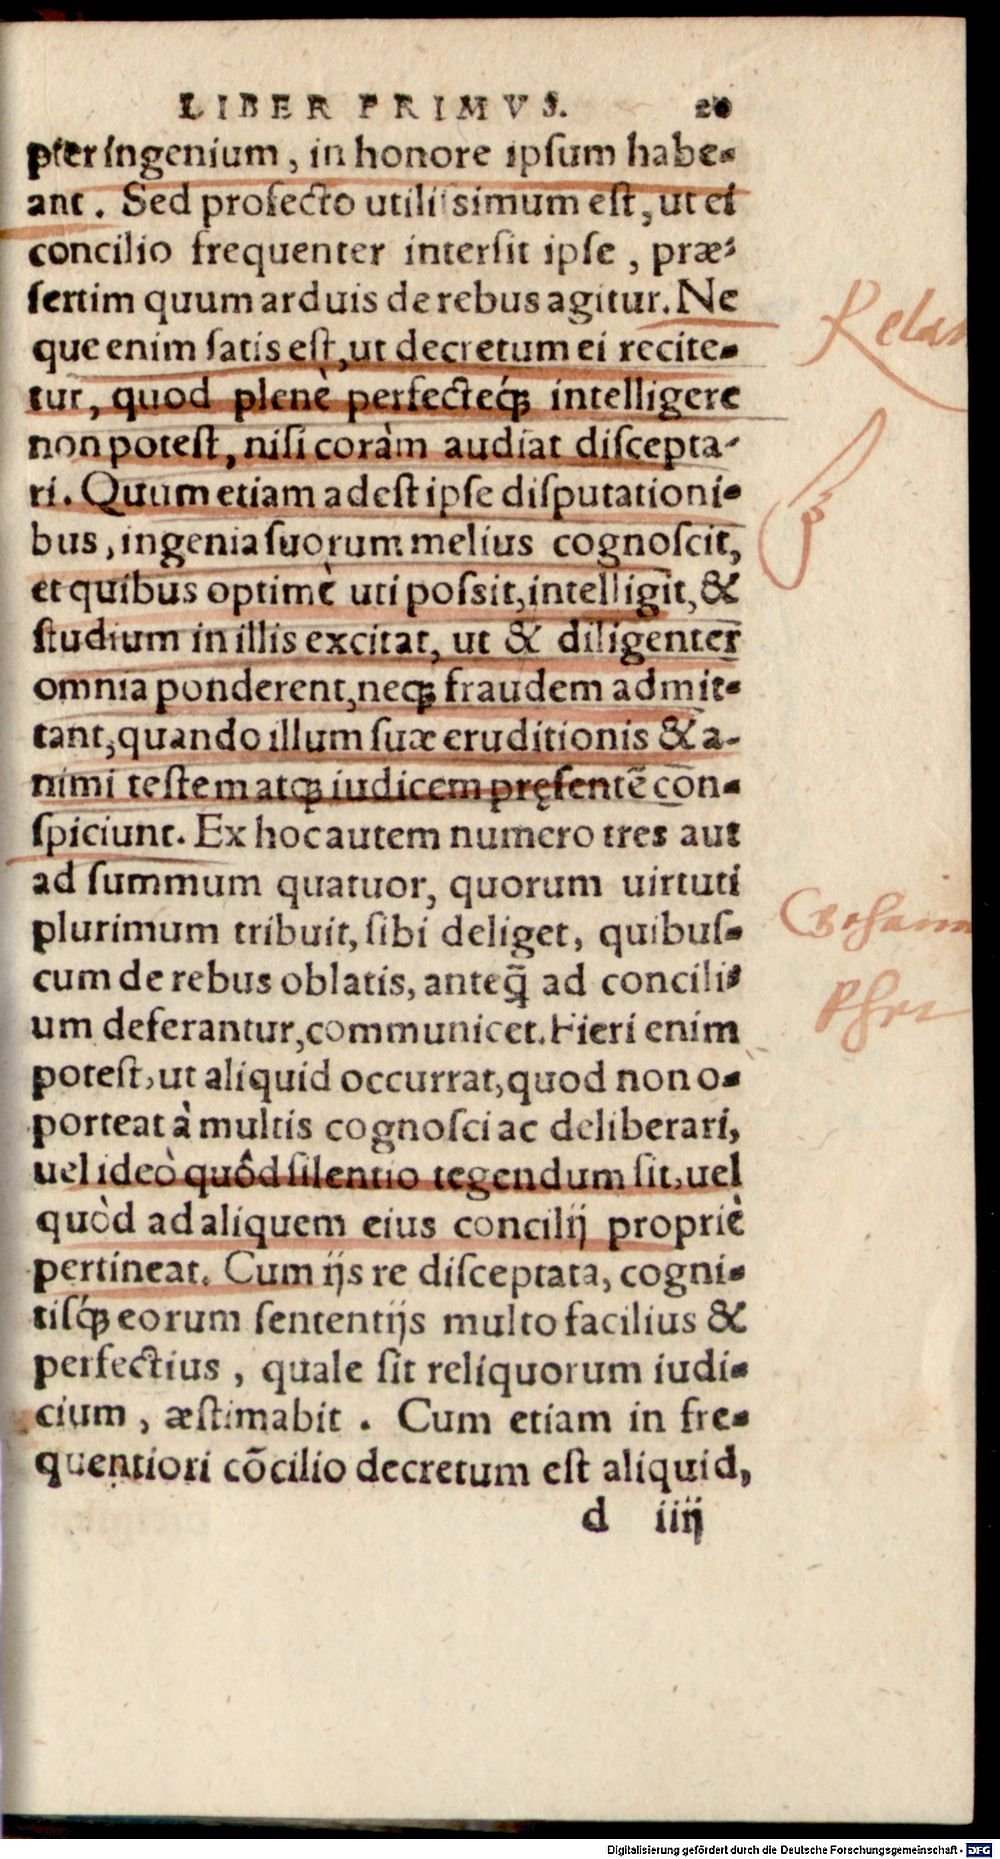 LIBER PRIMVS. 20
pter ingenium, in honore ipsum habe-
ant. Sed profecto utilissimum est, ut ei
concilio frequenter intersit ipse, præ-
sertim quum arduis de rebus agitur. Ne
que enim satis est, ut decretum ei recite-
tur, quod plenè perfecteq́ꝫ intelligere
non potest, nisi coràm audiat discepta-
ri. Quum etiam adest ipse disputationi-
bus, ingenia suorum melius cognoscit,
et quibus optimè uti possit, intelligit, &
studium in illis excitat, ut & diligenter
omnia ponderent, neqꝫ fraudem admit-
tant, quando illum suæ eruditionis & a-
nimi testem atqꝫ iudicem pręsentē con-
spiciunt. Ex hoc autem numero tres aut
ad summum quatuor, quorum uirtuti
plurimum tribuit, sibi deliget, quibus-
cum de rebus oblatis, anteq̃ ad concili-
um deferantur, communicet. Fieri enim
potest, ut aliquid occurrat, quod non o-
porteat à multis cognosci ac deliberari,
uel ideò quôd silentio tegendum sit, uel
quòd ad aliquem eius concilij propriè
pertineat. Cum ijs re disceptata, cogni-
tisq́ꝫ eorum sententijs multo facilius &
perfectius, quale sit reliquorum iudi-
cium, æstimabit. Cum etiam in fre-
quentiori cōcilio decretum est aliquid,
d iiij
Digitalisierung gefördert durch die Deutsche Forschungsgemeinschaft - DFG